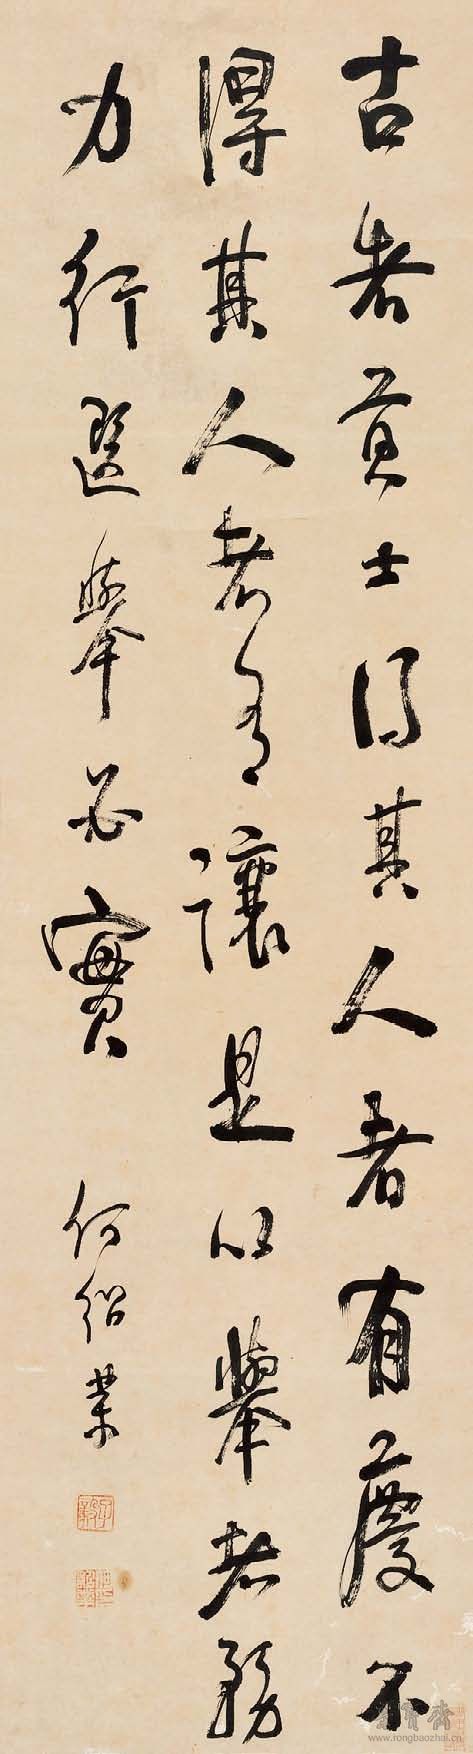 古者貢士得其人者有慶不
得其人者有讓是以舉者務
力行選舉必實
何紹業
www.rongbaozhai.cn